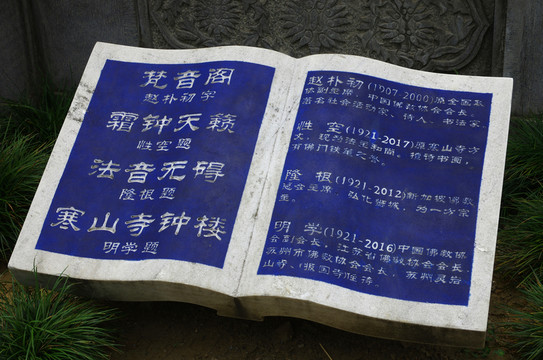 梵音阁
赵朴初字
霜钟天籁
性空题
法音无碍
隆根题
寒山寺钟楼
明学题
赵朴初(1907-2000)原全国政
协副主席，中国佛教协会会长。
著名社会活动家、诗人、书法家
性空(1921-2017)原寒山寺方
丈，现为法主和尚。擅诗书画，
有佛门铁笔之誉。
隆根(1921-2012)新加坡佛教
总会主席，弘化狮城，为一方宗
主。
明学(1921-2016)中国佛教协
会副会长，江苏省佛教协会会长，
苏州市佛教协会会长，苏州灵岩
山寺、报国寺住持。